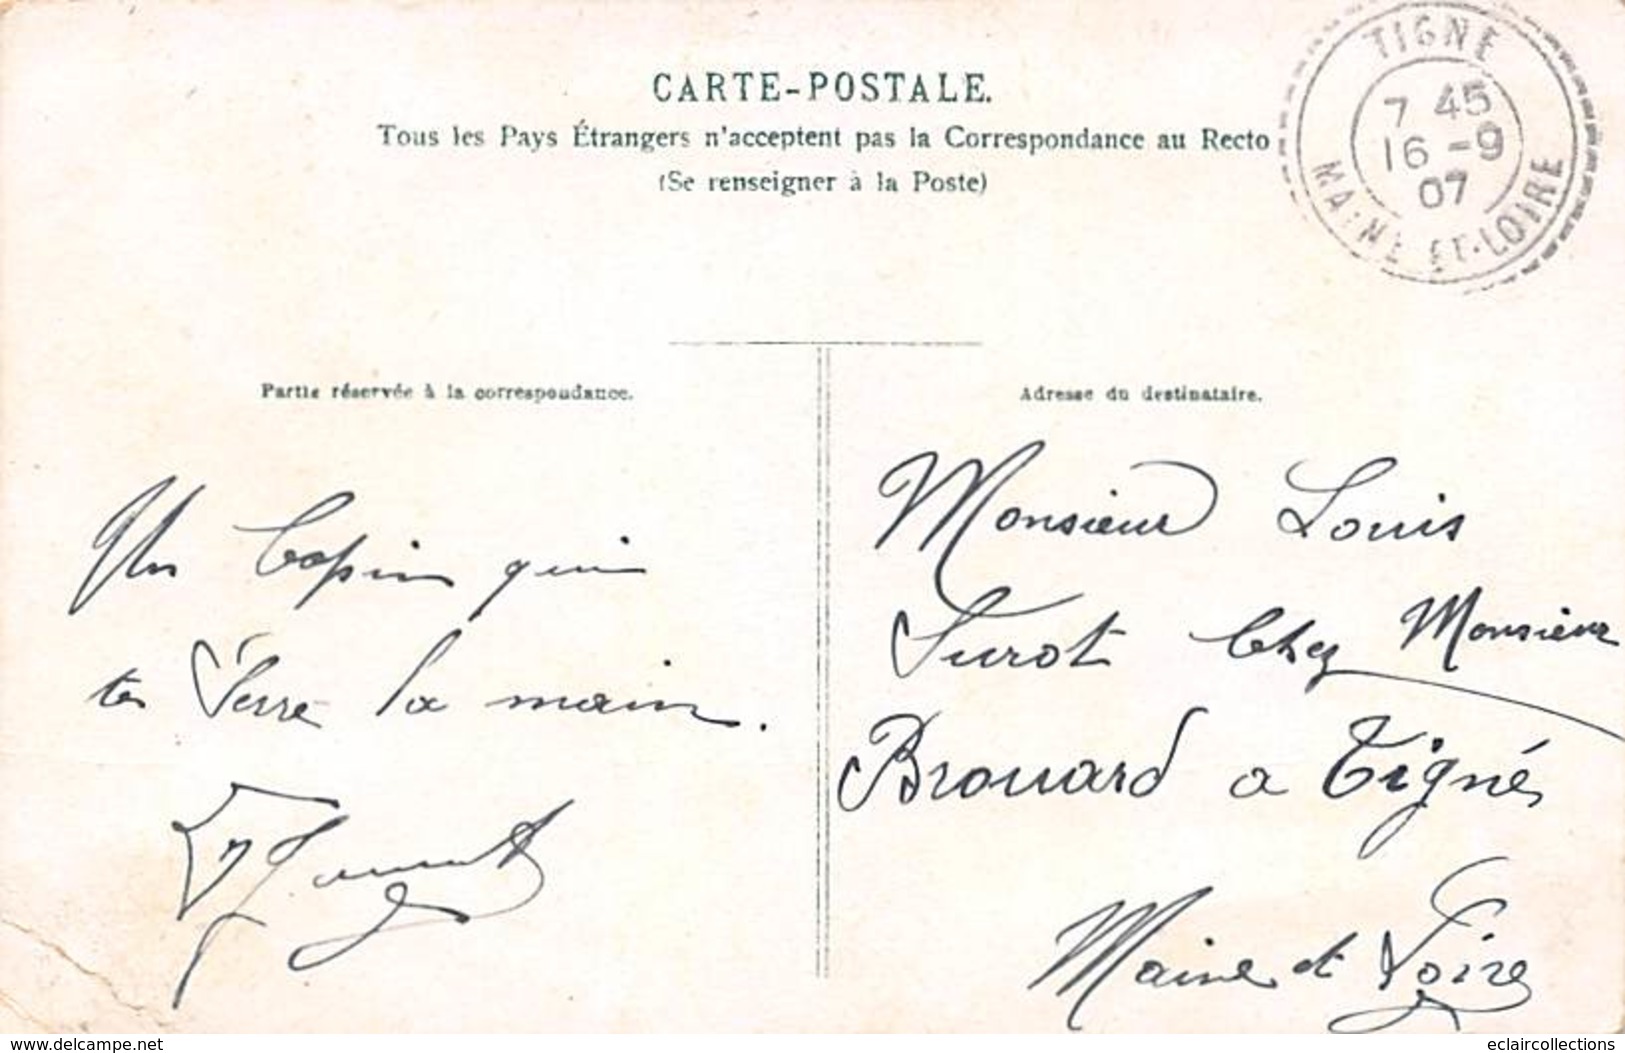 CARTE-POSTALE.
Tous les Pays Étrangers n'acceptent pas la Correspondance au Recto
(Se renseigner à la Poste)
TIGNE
7 45
16 -9
07
MAINE-ET-LOIRE
Partie réservée à la correspondance.
Un Copin qui
te Serre la main.
Adresse du destinataire.
Monsieur Louis
Surot Chez Monsieur
Brouard a Tigné
Maine et Loire
www.delcampe.net
eclaircollections